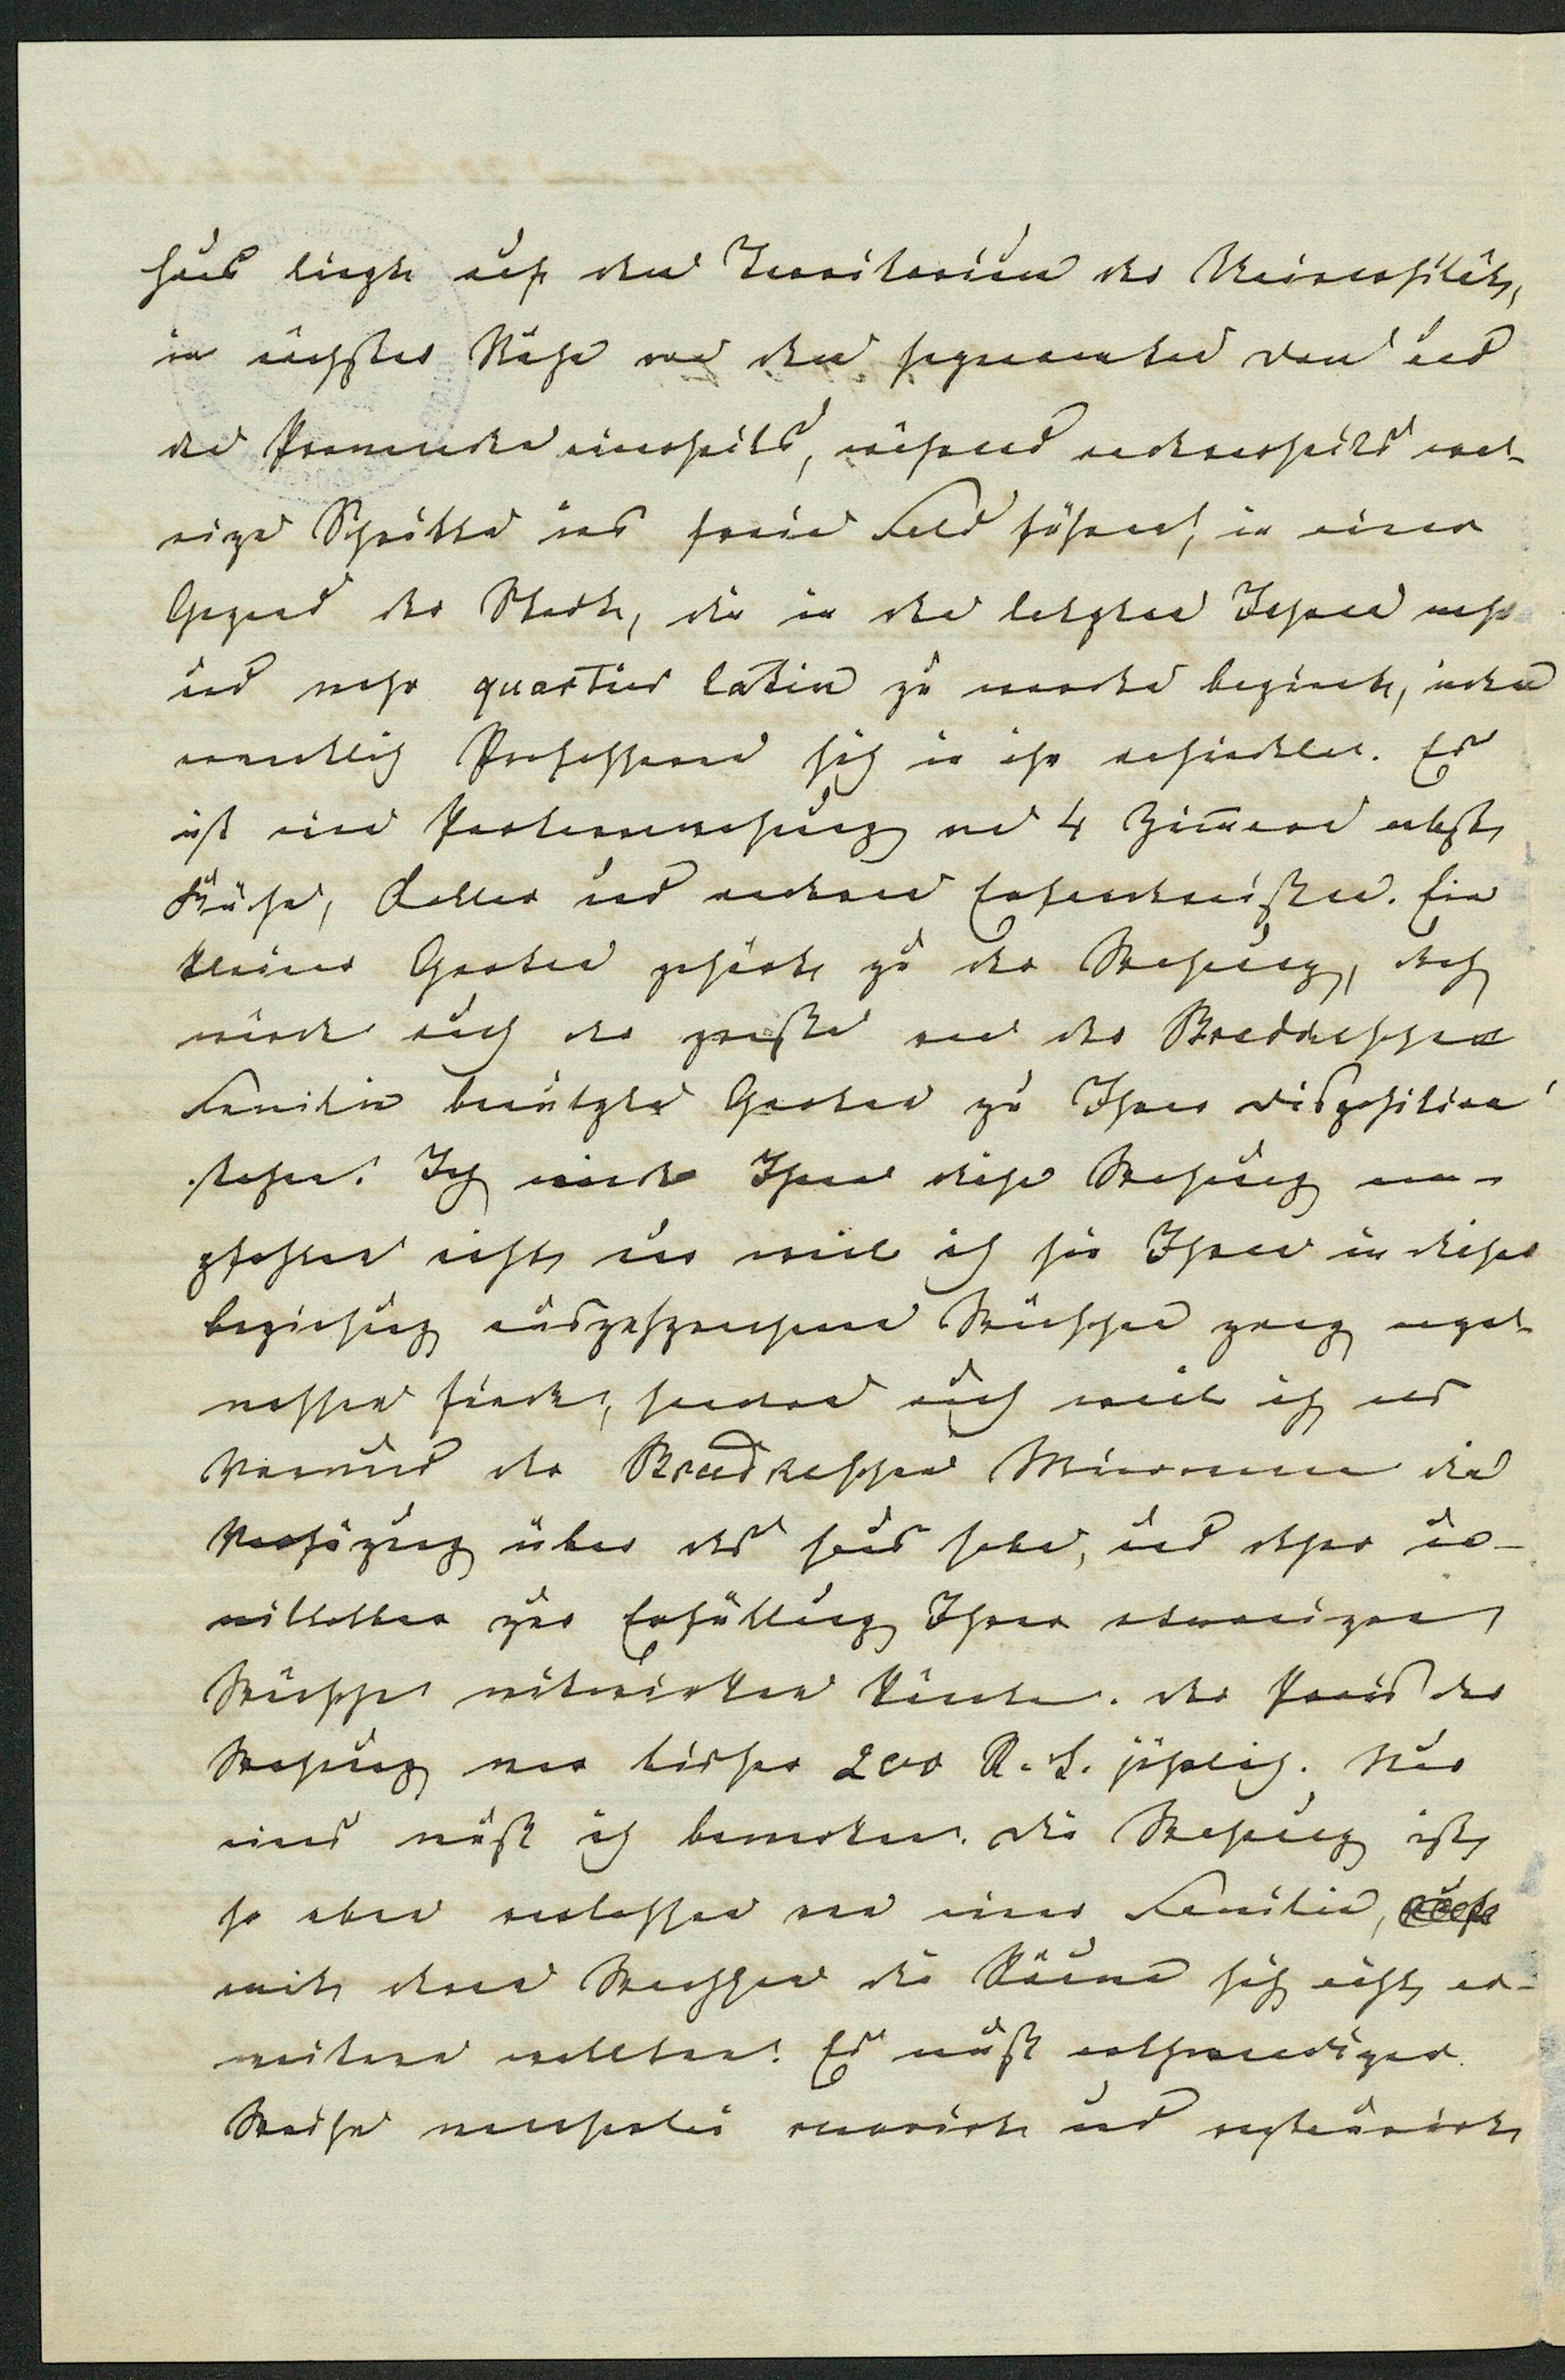 Haus liegt auf dem Territorium der Universität,
in nächster Nähe von dem sogenannten Dom und
den Promenaden einerseits, während andererseits we-
nige Schritte ins freie Feld führen, in einer
Gegend der Stadt, die in den letzten Jahren mehr
und mehr quartier latin zu werden beginnt, indem
namentlich Professoren sich in ihr ansiedeln. Es
ist eine Parterrewohnung von 4 Zimmern nebst
Küche, Keller und anderen Erfordernissen. Ein
kleiner Garten gehört zu der Wohnung, doch
würde auch der große von der Bradkeschen
Familie benützte Garten zu Ihrer Disposition
stehen. Ich würde Ihnen diese Wohnung em-
pfehlen nicht nur weil ich sie Ihren in dieser
Beziehung ausgesprochenen Wünschen ganz ange-
messen finde, sondern auch weil ich als
Vormund der Bradkeschen Minorennen die
Verfügung über das Haus habe, und daher un-
mittelbar zur Erfüllung Ihrer etwaigen
Wünsche mitwirken könnte. Der Preis der
Wohnung war bisher 200 R. S. jährlich. Nur
eines muß ich bemerken. Die Wohnung ist
so eben verlassen von einer Familie,
mit deren Wachsen die Räume sich nicht er-
weitern wollten. Es muß nothwendiger
Weise mancherlei renovirt und restaurirt